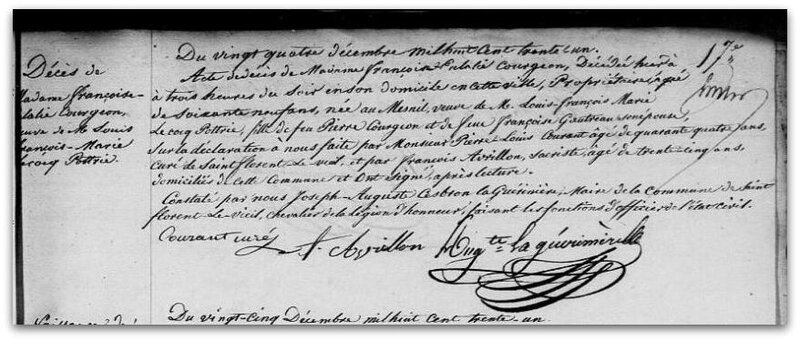 Du vingt quatre décembre mil huit Cent trente un.
Décès de
Madame Françoise-
Eulalie Courgeon,
veuve de Mr Louis
François-Marie
Lecoq Pottrie.
Acte de décès de Madame Françoise Eulalie Courgeon, Décédée hier à
à trois heures du Soir en son domicile en cette ville, Propriétaire, âgée
de Soixante neuf ans, née au Mesnil, veuve de Mr. Louis-François Marie
Le coq Pottrie, fille de feu Pierre Courgeon et de feue Françoise Gautreau son épouse,
Sur la déclaration à nous faite par Monsieur Pierre-Louis Courant âgé de quarante quatre ans,
curé de Saint florent-le vieil, et par François Avrillon, sacriste, âgé de trente cinq ans,
domiciliés de cette Commune et Ont Signé, après lecture.
Constaté par nous Joseph-August Cesbron la Guérinière, Maire de la Commune de Saint
florent-le-vieil, chevalier de la légion d'honneur, faisant les fonctions d'officier de l'état civil.
17e
Courant curé
f. Avrillon
Aug.te la guérinière
Du vingt-cinq Décembre mil huit Cent trente-un